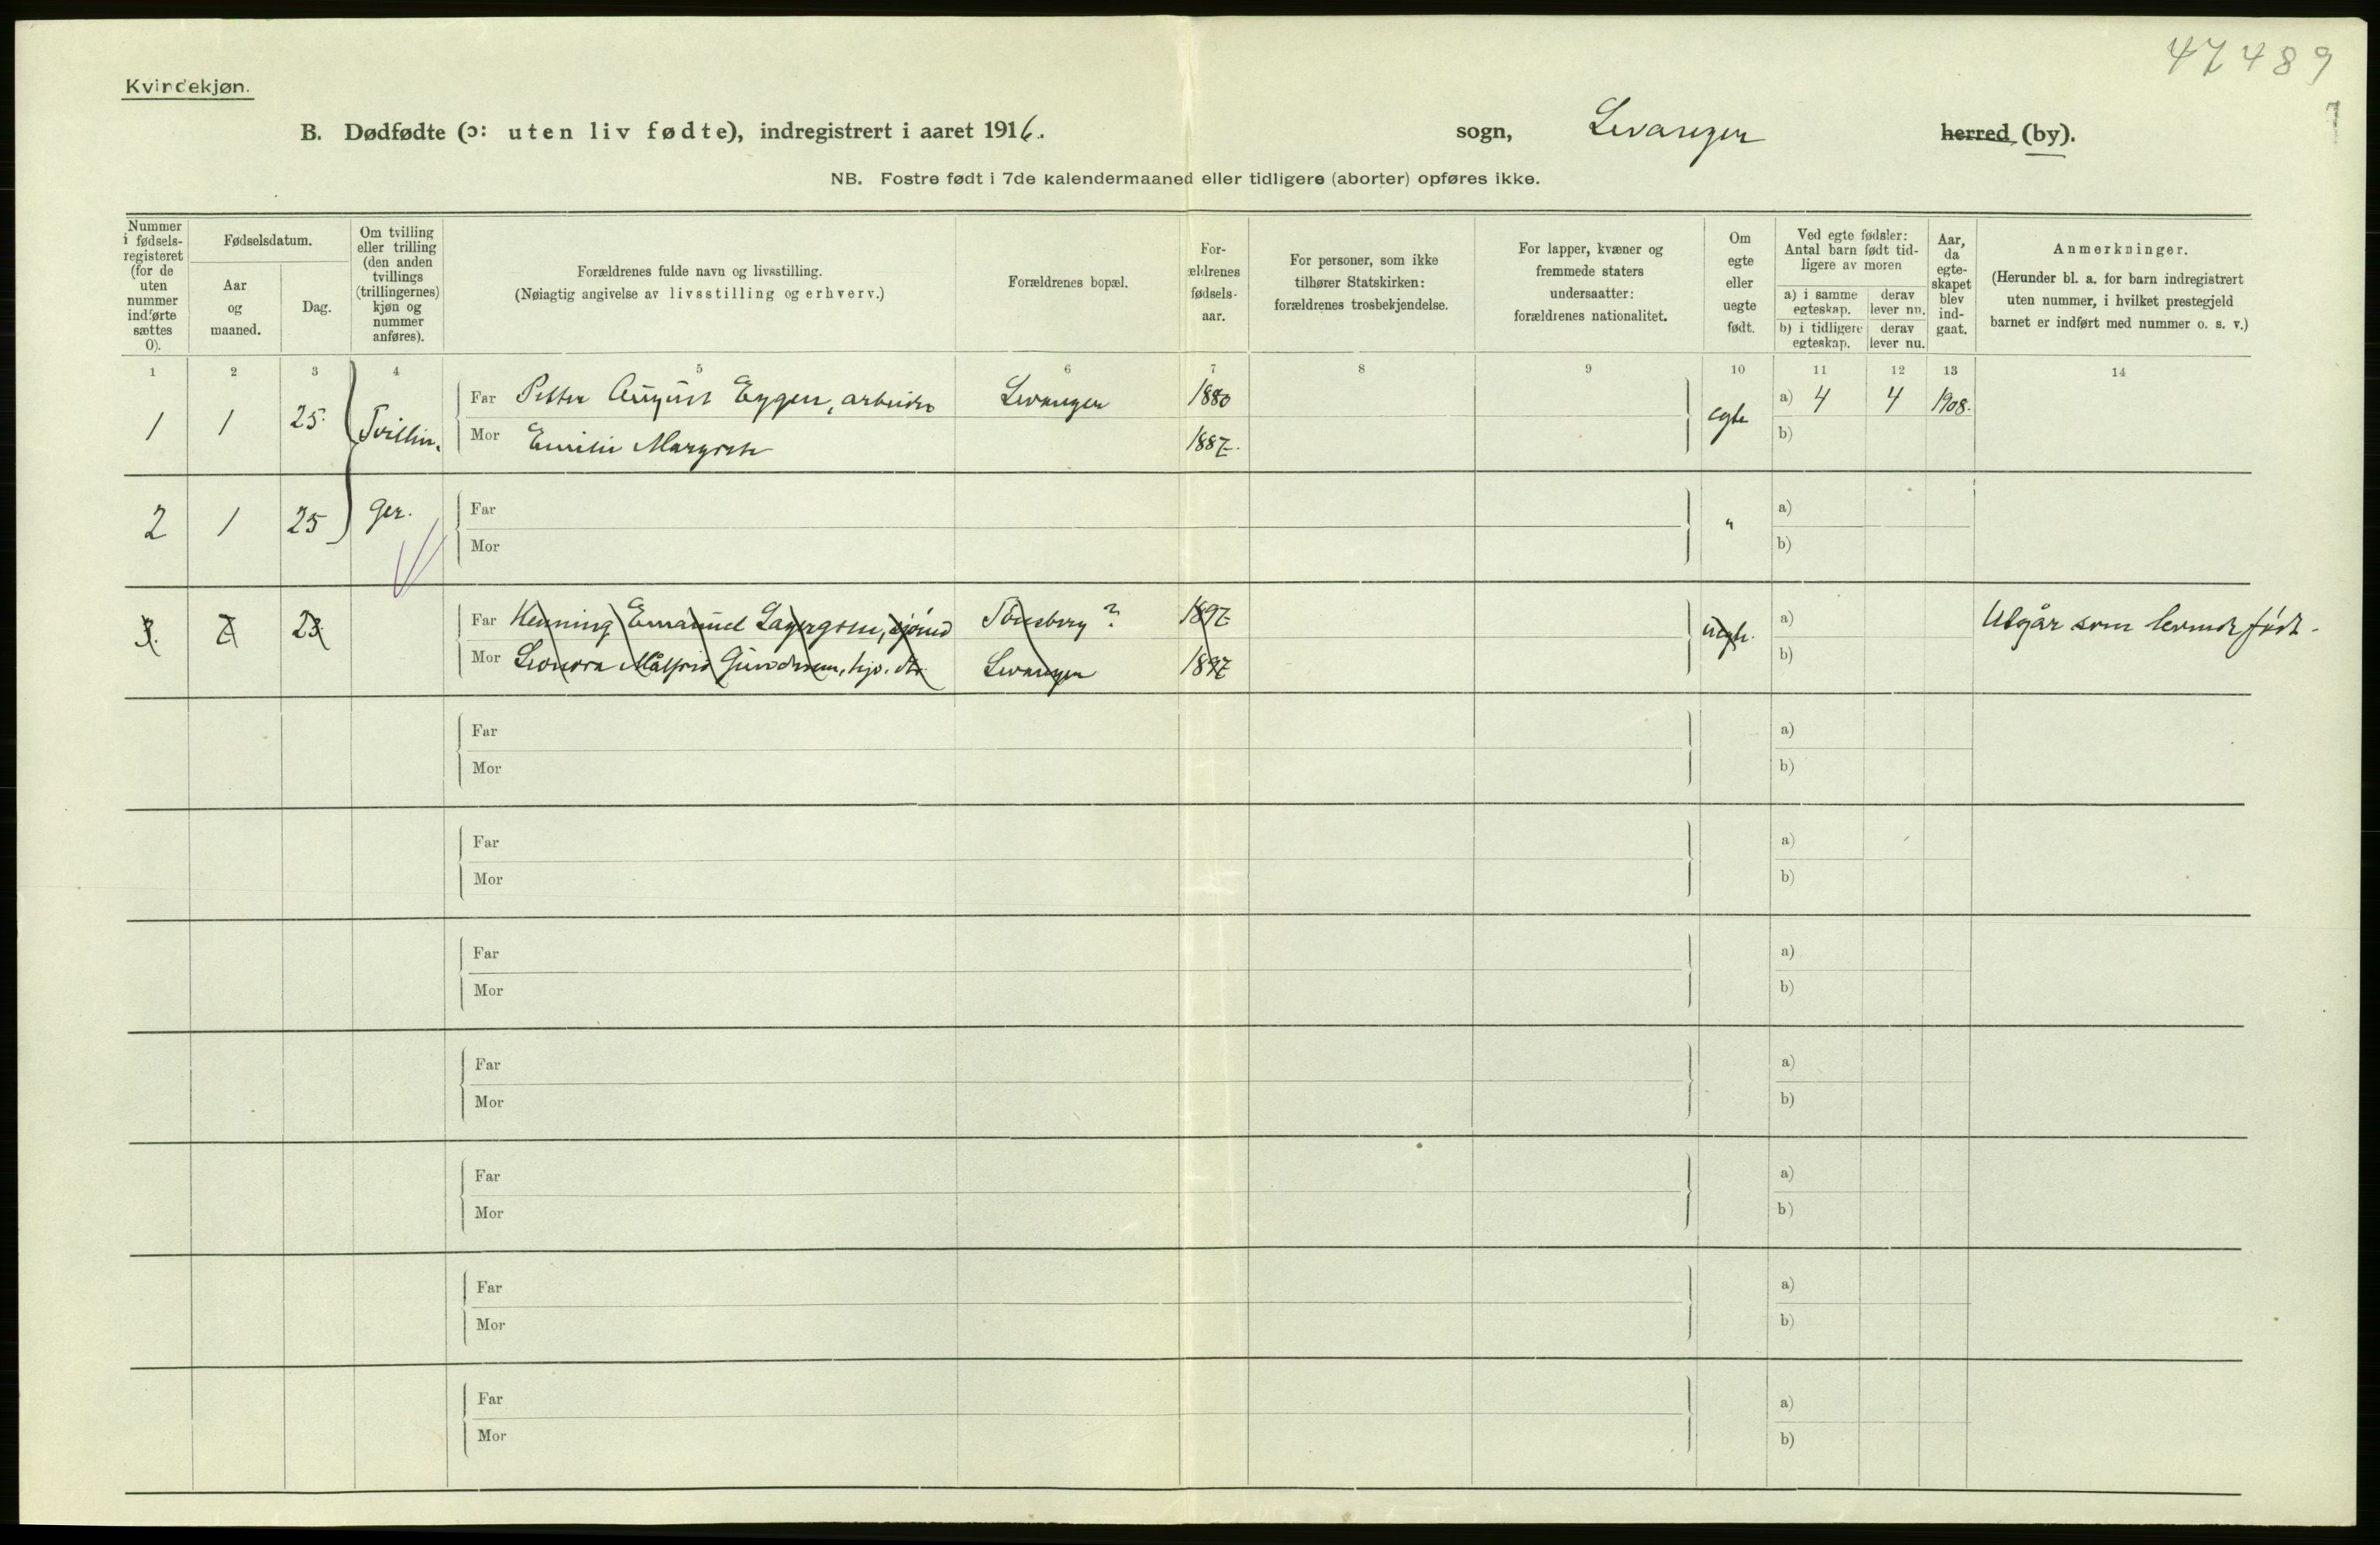 47489
7
Kvindekjøn.
B. Dødfødte (ɔ: uten liv fødte), indregistrert i aaret 1916. sogn, Levanger herred (by).
NB. Fostre født i 7de kalendermaaned eller tidligere (aborter) opføres ikke.
Nummer i fødsels-registeret (for de uten nummer indførte sættes 0).
Fødselsdatum.
Aar og maaned.
Dag.
Om tvilling eller trilling (den anden tvillings (trillingernes) kjøn og nummer anføres).
Forældrenes fulde navn og livsstilling.
(Nøiagtig angivelse av livsstilling og erhverv.)
Forældrenes bopæl.
For-ældrenes fødsels-aar.
For personer, som ikke tilhører Statskirken: forældrenes trosbekjendelse.
For lapper, kvæner og fremmede staters undersaatter: forældrenes nationalitet.
Om egte eller uegte født.
Ved egte fødsler: Antal barn født tid-ligere av moren
a) i samme egteskap.
derav lever nu.
b) i tidligere egteskap.
derav lever nu.
Aar, da egte-skapet blev ind-gaat.
Anmerkninger.
(Herunder bl. a. for barn indregistrert uten nummer, i hvilket prestegjeld barnet er indført med nummer o. s. v.)
1 2 3 4 5 6 7 8 9 10 11 12 13 14
1 1 25. Tvillin. Far Petter August Eggen, arbeider Levanger 1880 egte a) 4 4 1908.
Mor Emilie Margrete 1887. b)
2 1 25 ger. Far " a)
Mor b)
3. 7 23. Far Henning Emanuel Tönsberg ? 1897 uegte. a) Utgår som levende født.
Mor Leonora Målfrid Gundersen, Levanger 1897 b)
Far a)
Mor b)
Far a)
Mor b)
Far a)
Mor b)
Far a)
Mor b)
Far a)
Mor b)
Far a)
Mor b)
Far a)
Mor b)